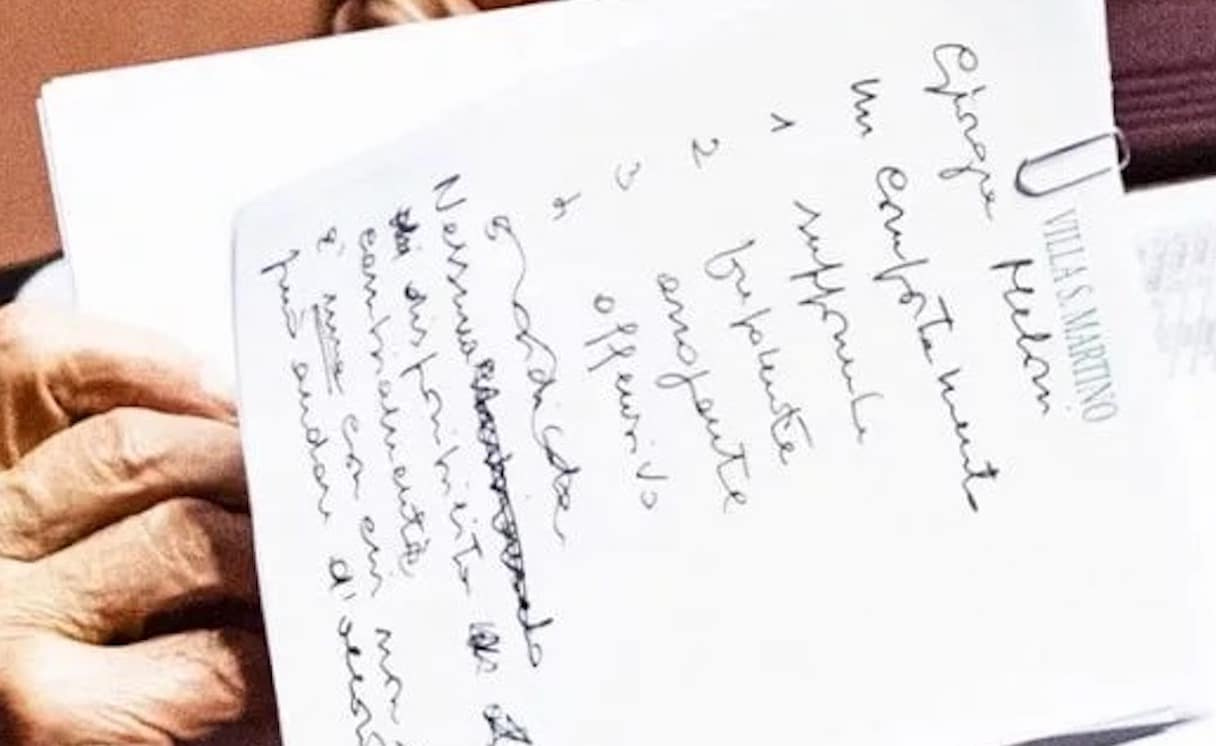 VILLA S. MARTINO
Giorgia Meloni
un comportamento
1 supponente
2 prepotente
3 arrogante
4 offensivo
ridicola
Nessuna
disponibilità
cambiamenti
è una con cui non
può andare d'accor